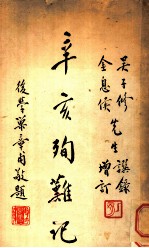 吳子修先生譔錄
金息侯先生增訂
辛亥殉難記
後學章甫敬題